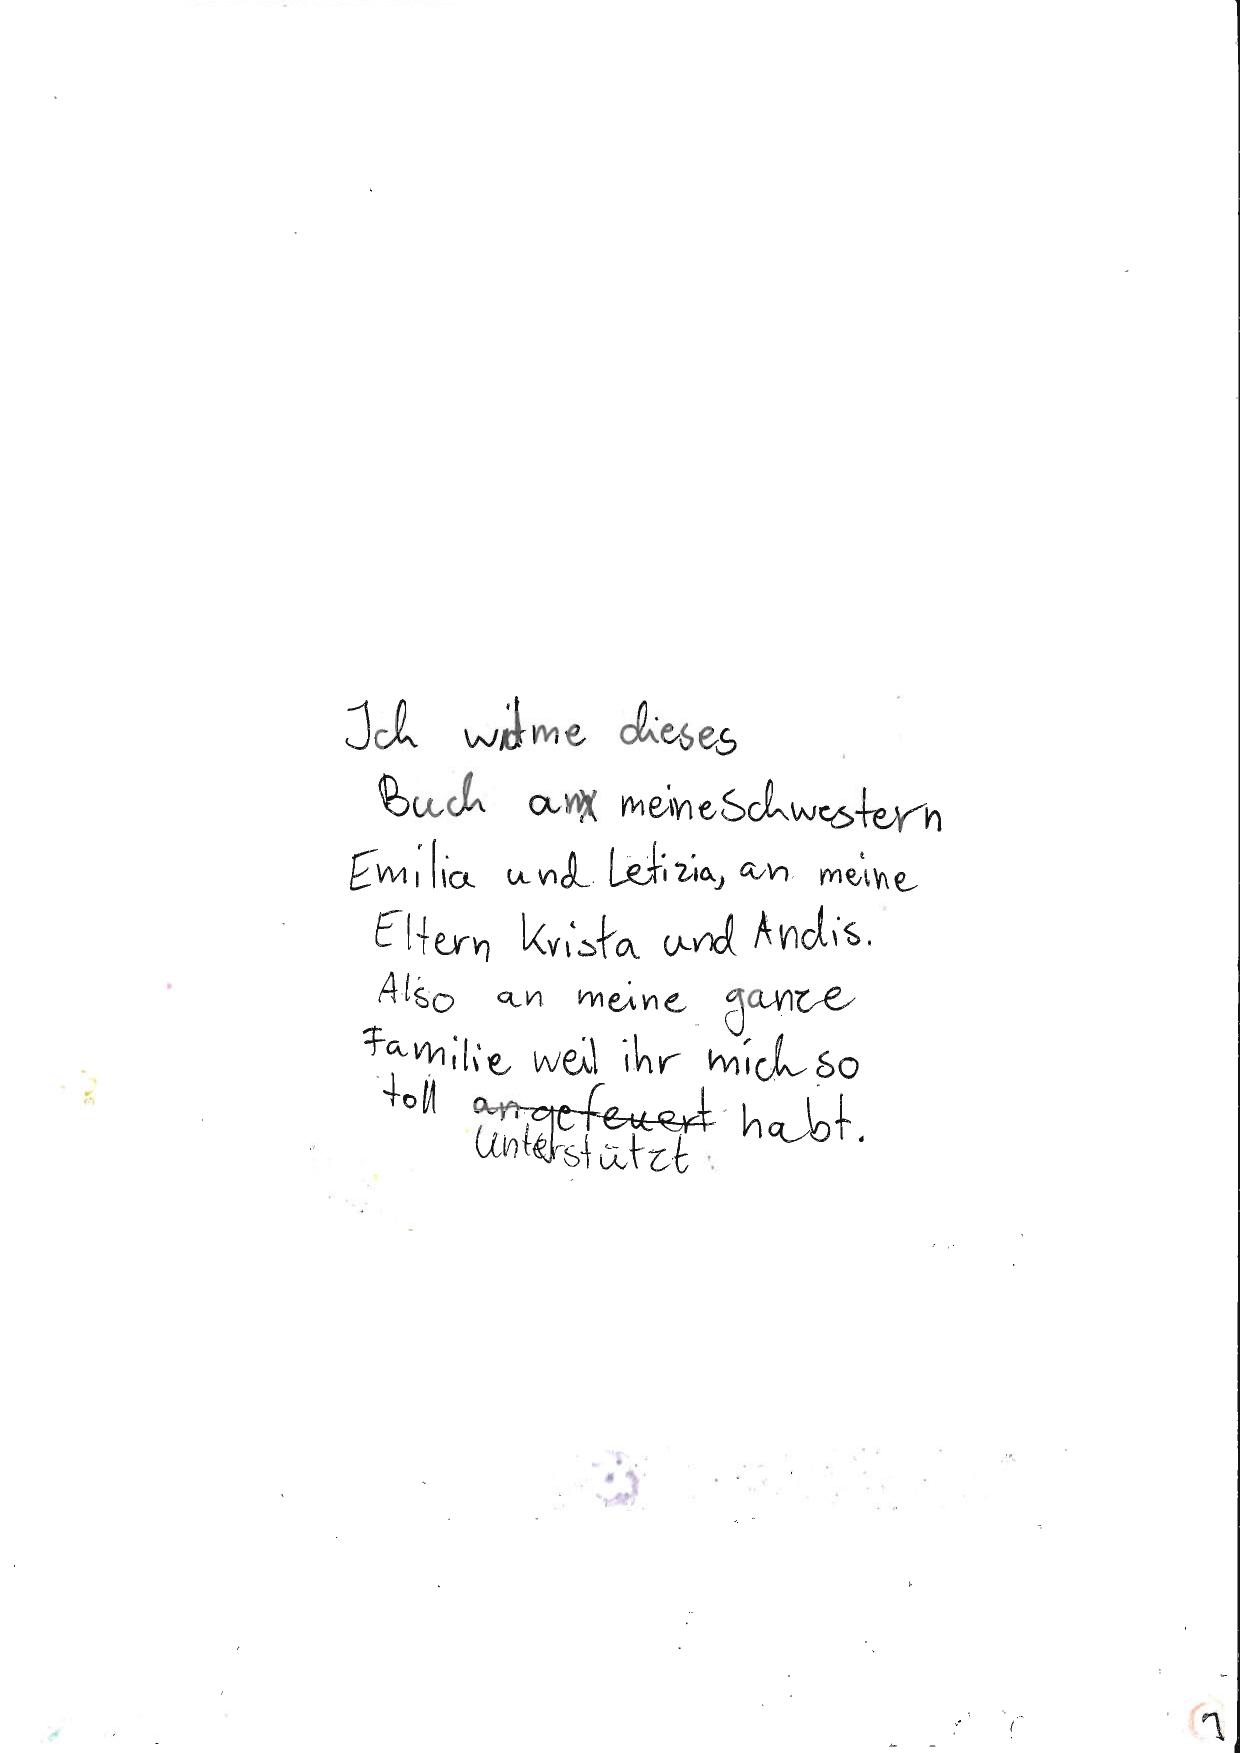 Ich widme dieses
Buch an meine Schwestern
Emilia und Letizia, an meine
Eltern Krista und Andis.
Also an meine ganze
Familie weil ihr mich so
toll angefeuert habt.
unterstützt
1